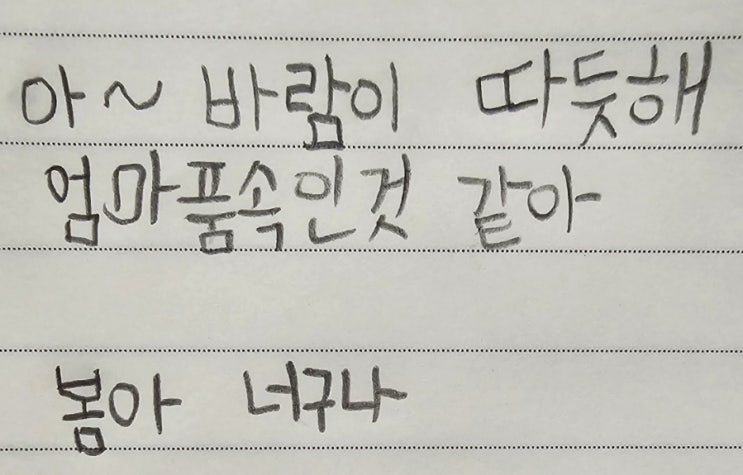 아~ 바람이 따듯해
엄마품속인것 같아
봄아 너구나